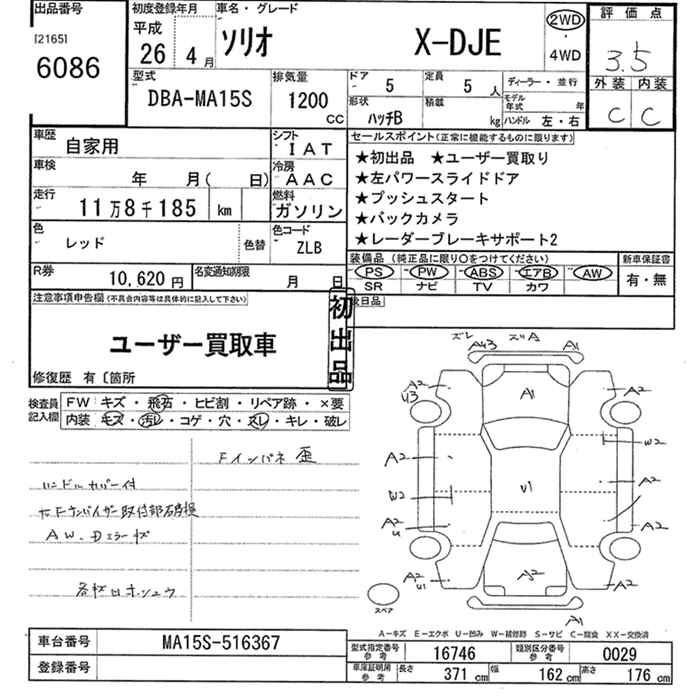 出品番号
[2165]
6086
初度登録年月
平成
26 4月
車名・グレード
ソリオ X-DJE
2WD
・
4WD
評価点
3.5
外装 内装
C C
型式
DBA-MA15S
排気量
1200
CC
ドア
5
定員
5 人
形状
ハッチB
積載
kg
ディーラー・並行
モデル年式 年
ハンドル 左・右
車歴
自家用
シフト
IAT
車検
年 月( 日)
冷房
AAC
走行
11万8千185 km
燃料
ガソリン
色
レッド
色替
色コード
ZLB
R券
10,620円
名変通知期限
月 日
セールスポイント(正常に機能するものに限ります)
★初出品 ★ユーザー買取り
★左パワースライドドア
★プッシュスタート
★バックカメラ
★レーダーブレーキサポート2
装備品(純正品に限り〇をつけてください)
PS PW ABS エアB AW
SR ナビ TV カワ
新車保証書
有・無
注意事項申告欄(不具合内容等は具体的に記入して下さい)
ユーザー買取車
初出品
修復歴 有〔箇所
検査員
記入欄
FW キズ・飛石・ヒビ割・リペア跡・×要
内装 キズ・汚レ・コゲ・穴・スレ・キレ・破レ
Fインパネ歪
ハンドルカバー付
AW.Dミラーキズ
ズレ
A1
A1
A2
U3
A2
A2
W2
W2
A2
U
U1
A2
A2
A2
A2
U1
A2
A1
スペア
A-キズ E-エクボ U-凹み W-補修跡 S-サビ C-腐食 XX-交換済
車台番号
MA15S-516367
登録番号
型式指定番号
参考
16746
類別区分番号
参考
0029
車庫証明用
参考
長さ
371 cm
幅
162 cm
高さ
176 cm